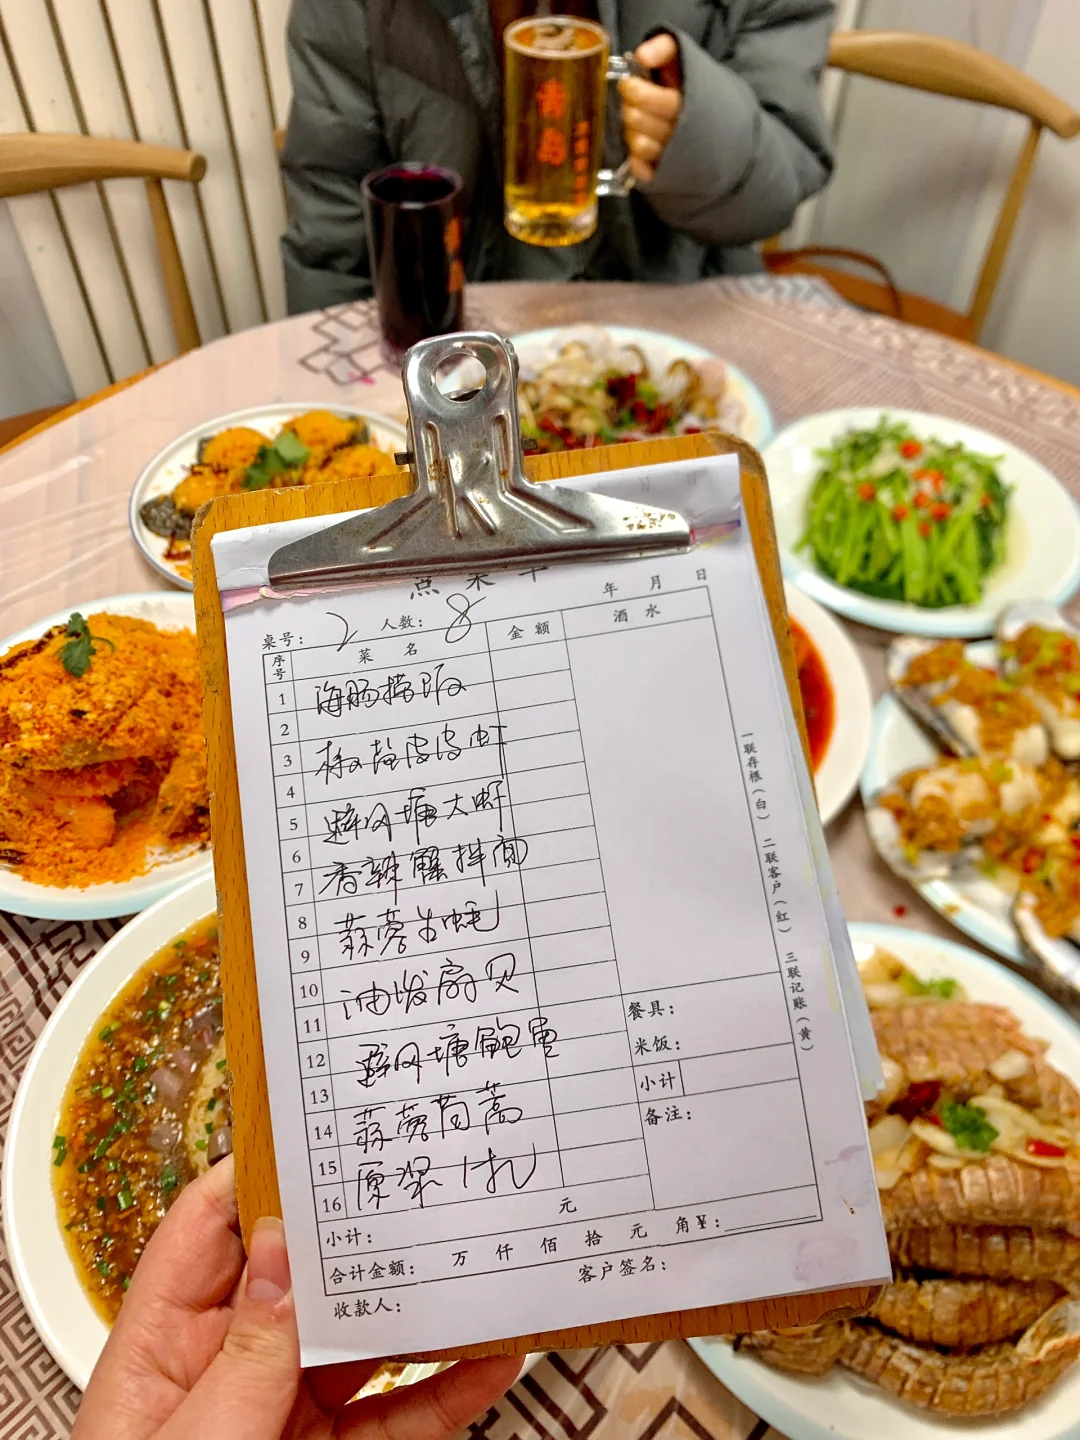 青岛
点菜单
年 月 日
桌号: 2 人数: 8
序号 菜 名 金 额 酒 水
1 海肠捞饭
2
3 椒盐皮皮虾
4
5 避风塘大虾
6
7 香辣蟹拌面
8
9 蒜蓉生蚝
10
11 油泼扇贝
12 避风塘鲍鱼
13
14 蒜蓉茼蒿
15
16 原浆1扎
餐具:
米饭:
小计
备注:
小计: 元
合计金额: 万 仟 佰 拾 元 角 ¥:
收款人: 客户签名:
一联存根(白) 二联客户(红) 三联记账(黄)